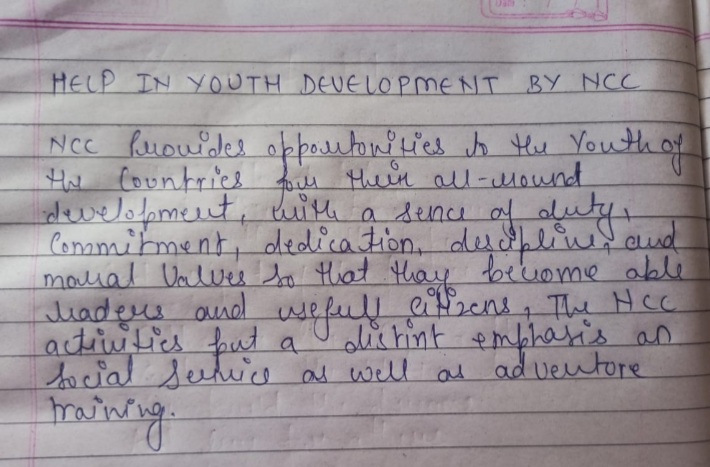 HELP IN YOUTH DEVELOPMENT BY NCC
NCC Provides oppoutonities to the Youth of
the Countries for their all-round
development, with a sence of duty,
Commitment, dedication, descipline, and
moral Values so that thay become able
leaders and usefull citizens, The NCC
activities put a distint emphasis an
social service as well as adventore
training.